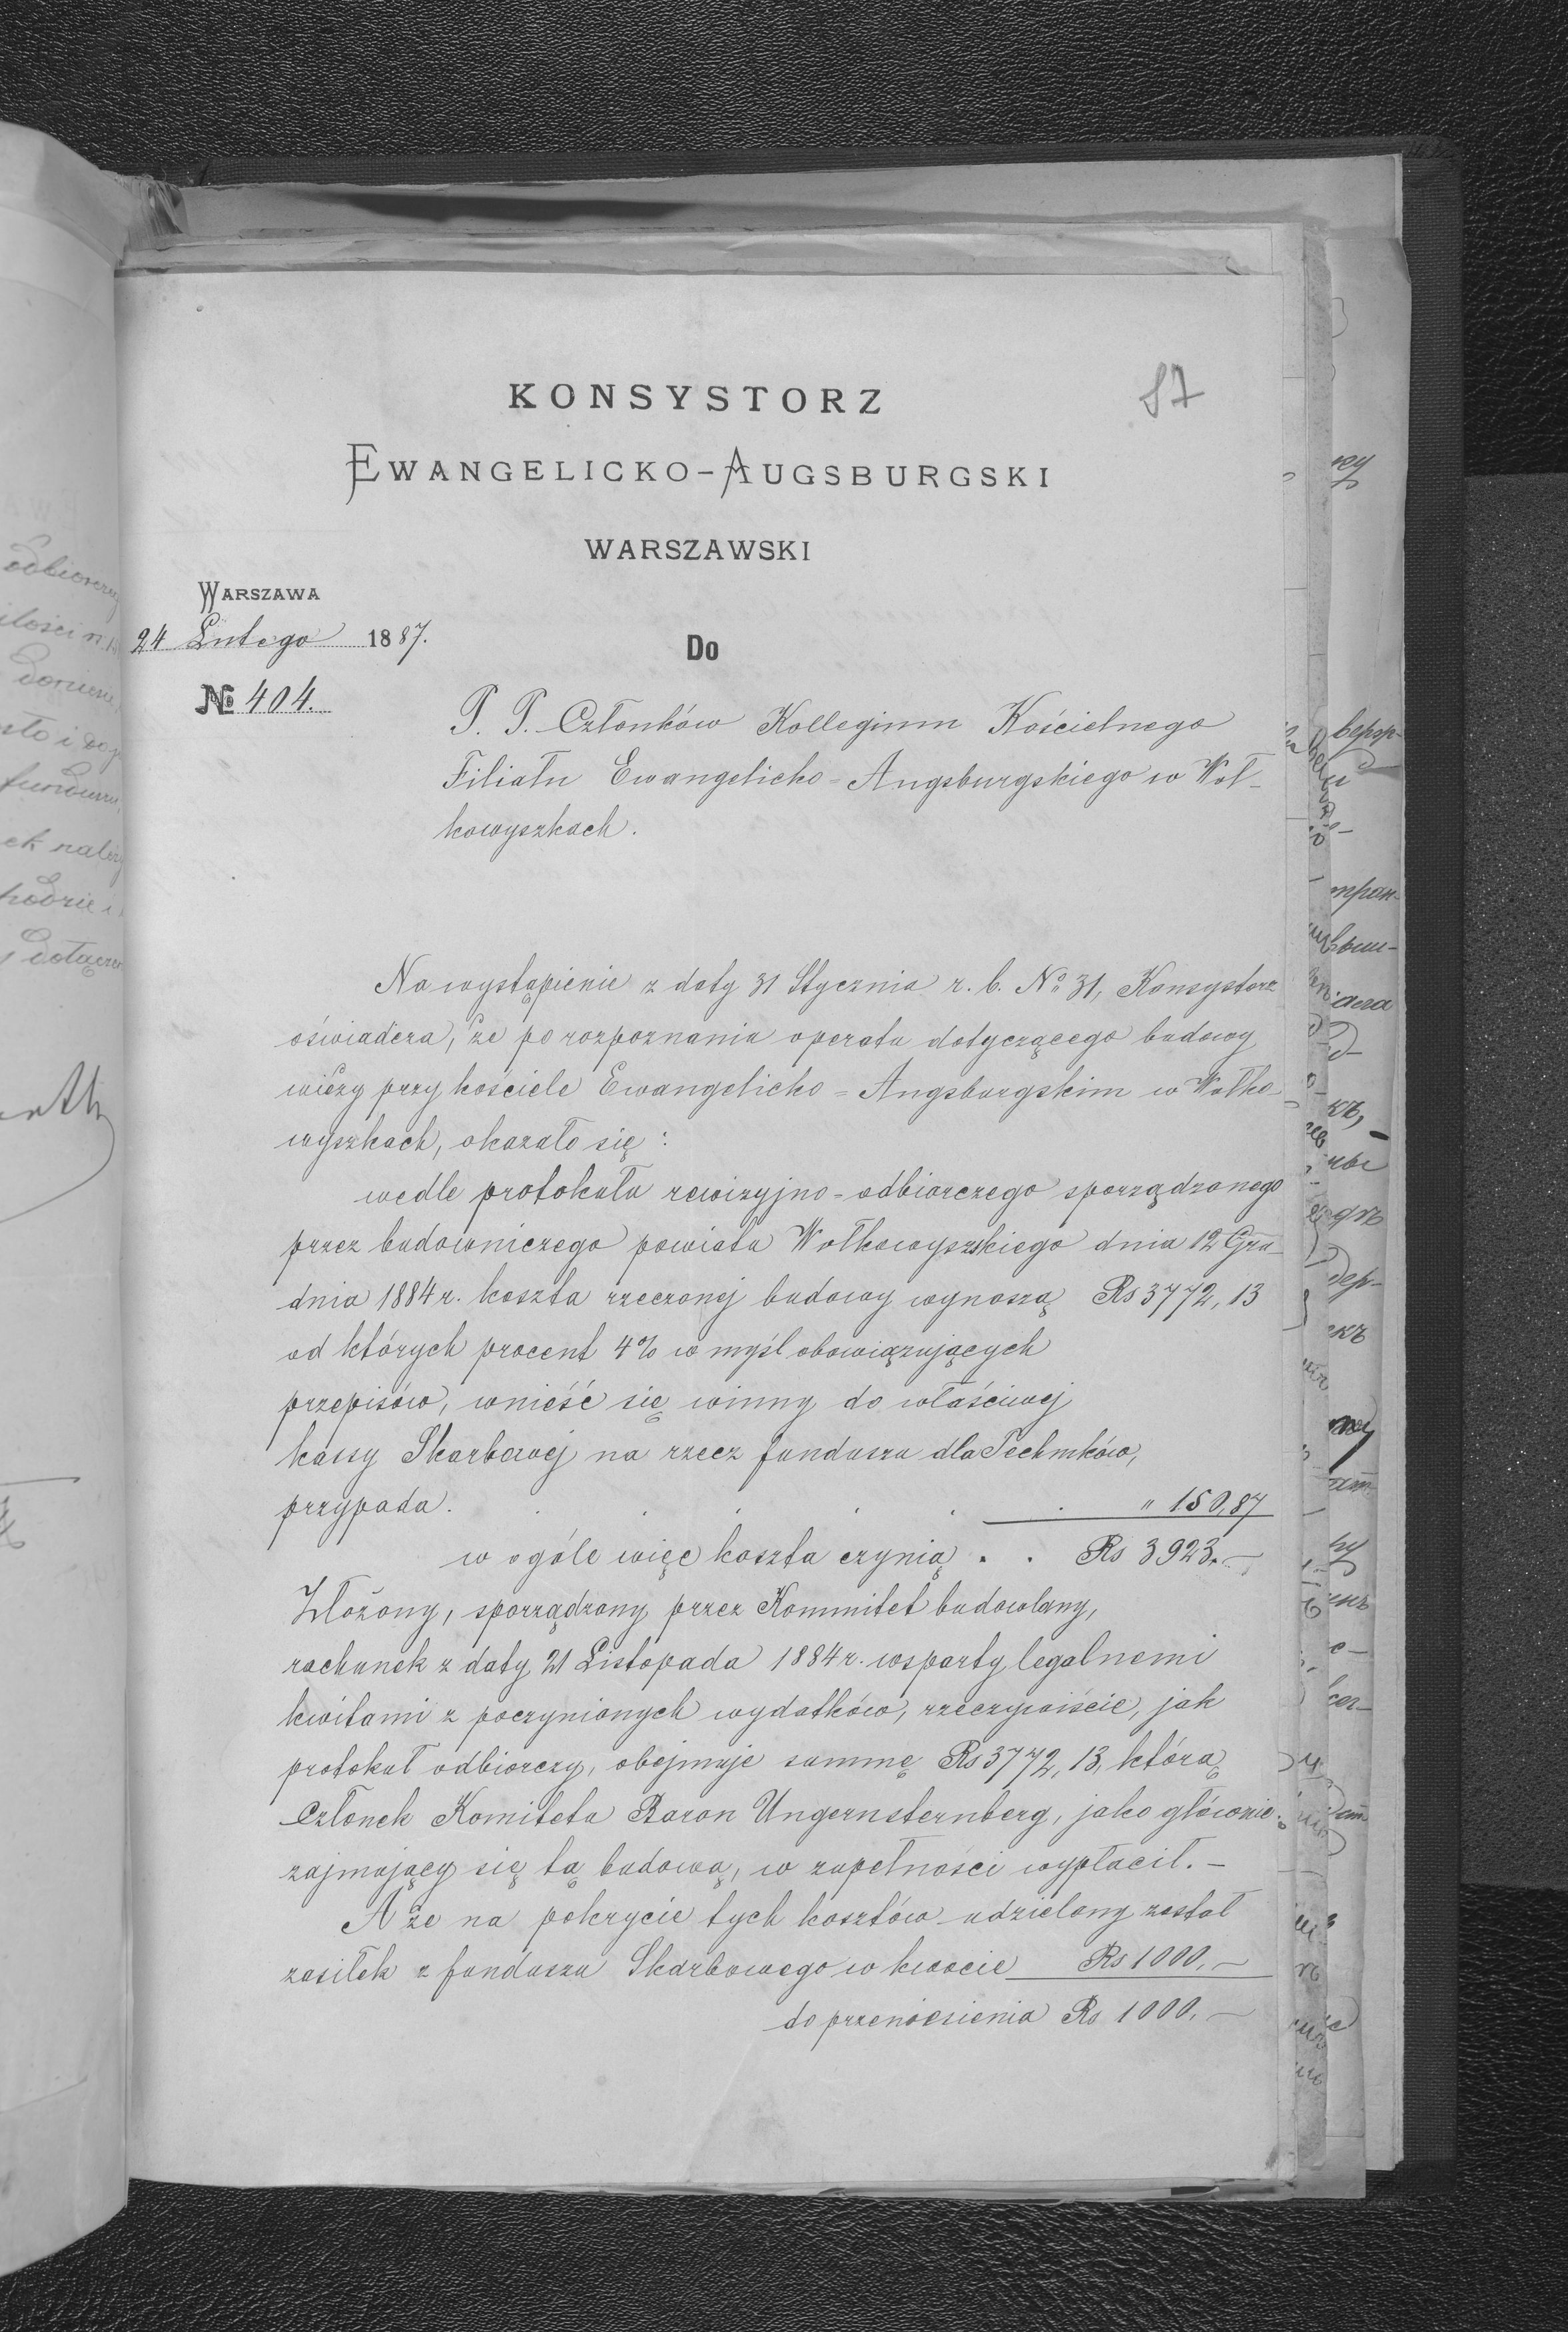 KONSYSTORZ
87
EWANGELICKO-AUGSBURGSKI
WARSZAWSKI
WARSZAWA
24 Lutego 1887.
Do
№ 404.
P. P. Członków Kollegium Kościelnego
Filiału Ewangelicko-Augsburgskiego w Woł-
kowyszkach.
Na wystąpienie z daty 31 Stycznia r. b. № 31, Konsystorz
oświadcza, że po rozpoznaniu operatu dotyczącego budowy
wieży przy kościele Ewangelicko-Augsburgskim w Wołko-
wyszkach, okazało się:
wedle protokułu rewizyjno-odbiorczego sporządzonego
przez budowniczego powiatu Wołkowyszskiego dnia 12 Gru-
dnia 1884 r. koszta rzeczonej budowy wynoszą Rs 3772,13
od których procent 4% w myśl obowiązujących
przepisów, wnieść się winny do właściwej
kassy Skarbowej na rzecz funduszu dla Techników,
przypada . . . . . . " 150,87
w ogóle więc koszta czynią . . Rs 3923.—
Złożony, sporządzony przez Kommitet budowlany,
rachunek z daty 21 Listopada 1884 r. wsparty legalnemi
kwitami z poczynionych wydatków, rzeczywiście, jak
protokuł odbiorczy, obejmuje summę Rs 3772,13, którą
Członek Komitetu Baron Ungernsternberg, jako głównie
zajmujący się tą budową, w zupełności wypłacił.—
A że na pokrycie tych kosztów udzielony został
zasiłek z funduszu Skarbowego w kwocie Rs 1000.—
do przeniesienia Rs 1000.—